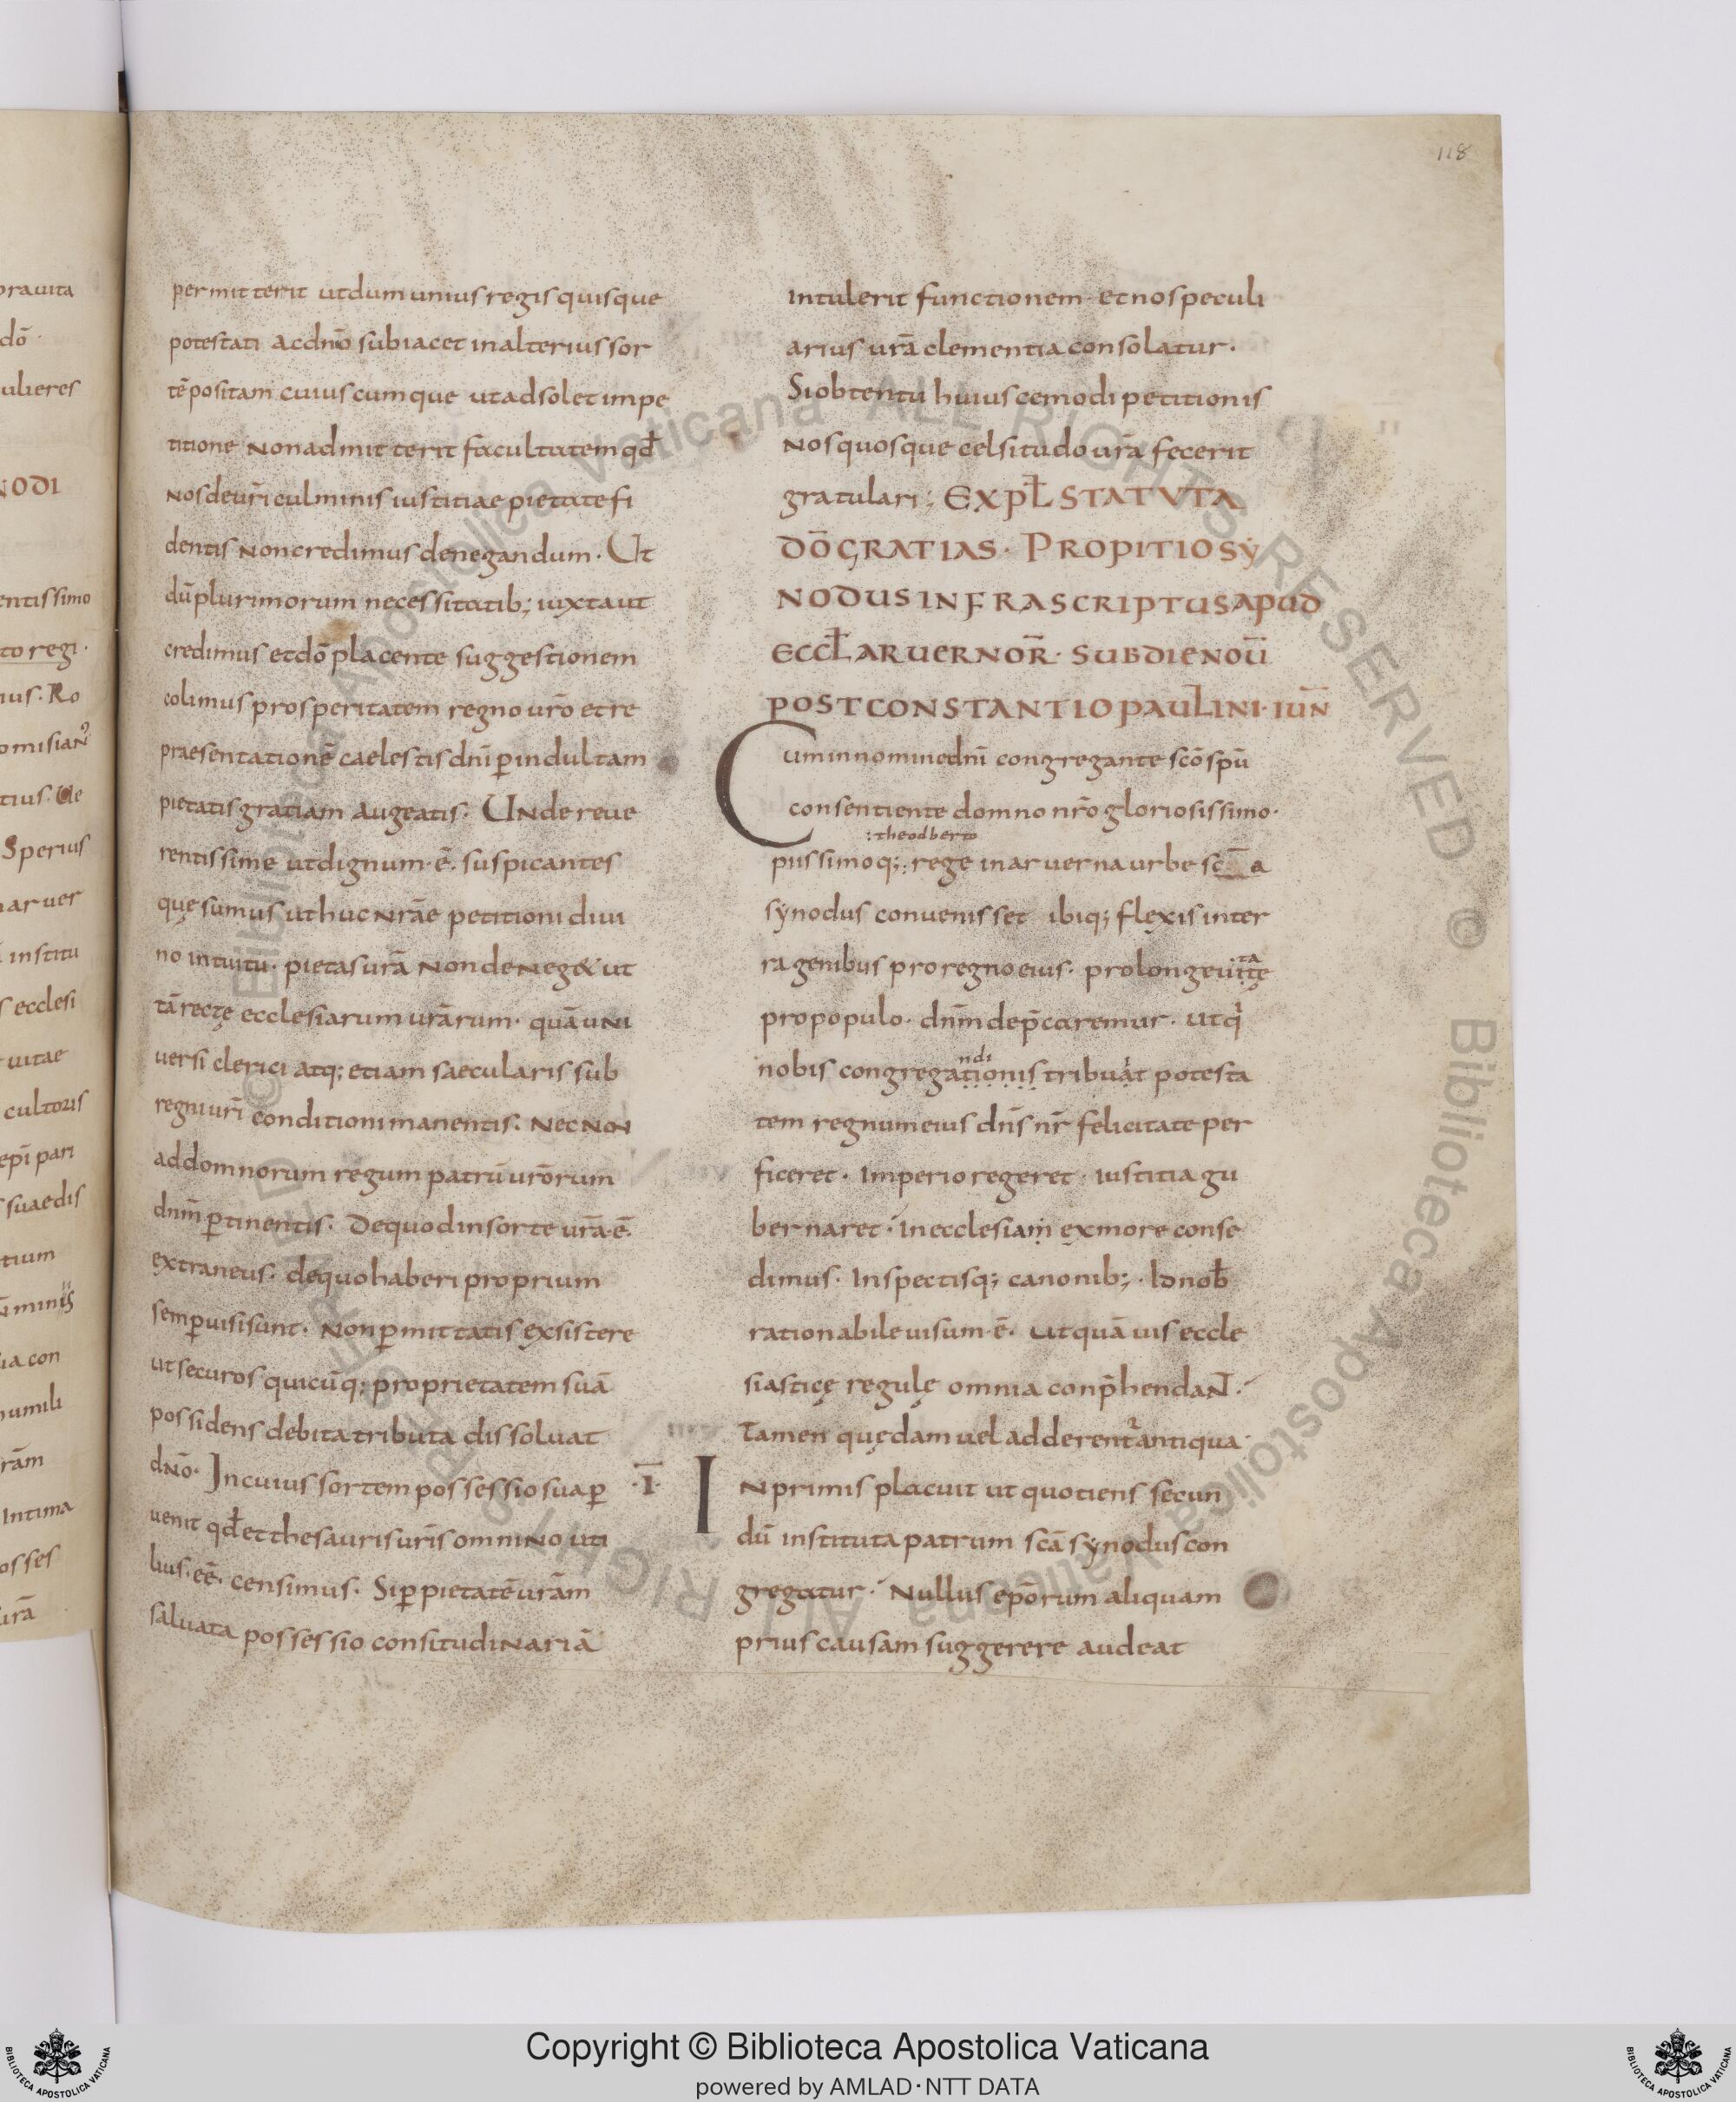 118
permitterit utdumunius regis quisque
potestati acdnō subiacet inalterius sor
tē positam cuiuscumque utadsolet impe
titione Nonadmitterit facultatem qđ
Nosdeur̄i culminis iustitiae pietate fi
dentis Noncredimus denegandum · Ut
dū plurimorum necessitatib; iuxtaut
credimus etdō placente suggestionem
colimus prosperitatem regno ur̄o etre
praesentationē caelestis dn̄i ꝑindultam
pietatis gratiam augeatis · UNde reue
rentissime utdignum · ē · suspicantes
quęsumus uthuc Nrāe petitioni diui
no intuitu · pietas urā NondeNeg& ut
tā rectę ecclesiarum urārum · quā uNi
uersi clerici atq; etiam saecularis sub
regni ur̄i conditioni manentis : NecNoN
addomnorum regum patrū urōrum
dnm̄ ꝑtinentis · Dequodinsorte urā · ē ·
extraneus · dequohaberi proprium
semꝑuisisunt · Nonꝑmittatis exsistere
ut securos quicūq; proprietatem suā
possidens debita tributa dissoluat
dNō · Incuius sortem possessio sua ꝑ
uenit qđ et thesauris ur̄is omniNo uti
lius · eē · censimus · Siꝑ pietatē urām
saluata possessio consitudiNariā
intulerit functionem · etnos peculi
arius urā clementia consolatur ·
Siobtentu huiuscemodi petitionis
Nos quosque celsitudo urā fecerit
gratulari ; EXPɫ STATVTA
DŌ GRATIAS · PROPITIO SY
NODUS INFRASCRIPTUS APUD
ECCɫ ARUERNOR̄ · SUBDIE NOU̅
POST CONSTANTIO PAULINI · IUN̅
Cuminnominednī congregante scō spū
consentiente domno nr̄o gloriosissimo ·
: theodberto
piissimoq; : rege inaruerna urbe sc̄a
synodus conuenisset ibiq; flexis inter
ra genibus proregnoeius · prolongeuitatę
propopulo · dnm̄ dep̄caremur · utq'
ndi
nobis congregationis tribuat potesta
tem regnumeius dn̄s nr̄ felicitate per
ficeret · Imperio regeret · iustitia gu
bernaret · inecclesiam exmore conse
dimus · Inspectisq; canonib; · Idnob̄
rationabile uisum · ē · Utquā uis eccle
siasticę regulę omnia conp̄hendaN̄ ·
Tamen quędam uel adderent' antiqua ·
· I · INprimis placuit ut quotiens secun
dū instituta patrum scā synodus con
gregatur · Nullus epōrum aliquam
prius causam suggerere audeat
Copyright © Biblioteca Apostolica Vaticana
powered by AMLAD·NTT DATA